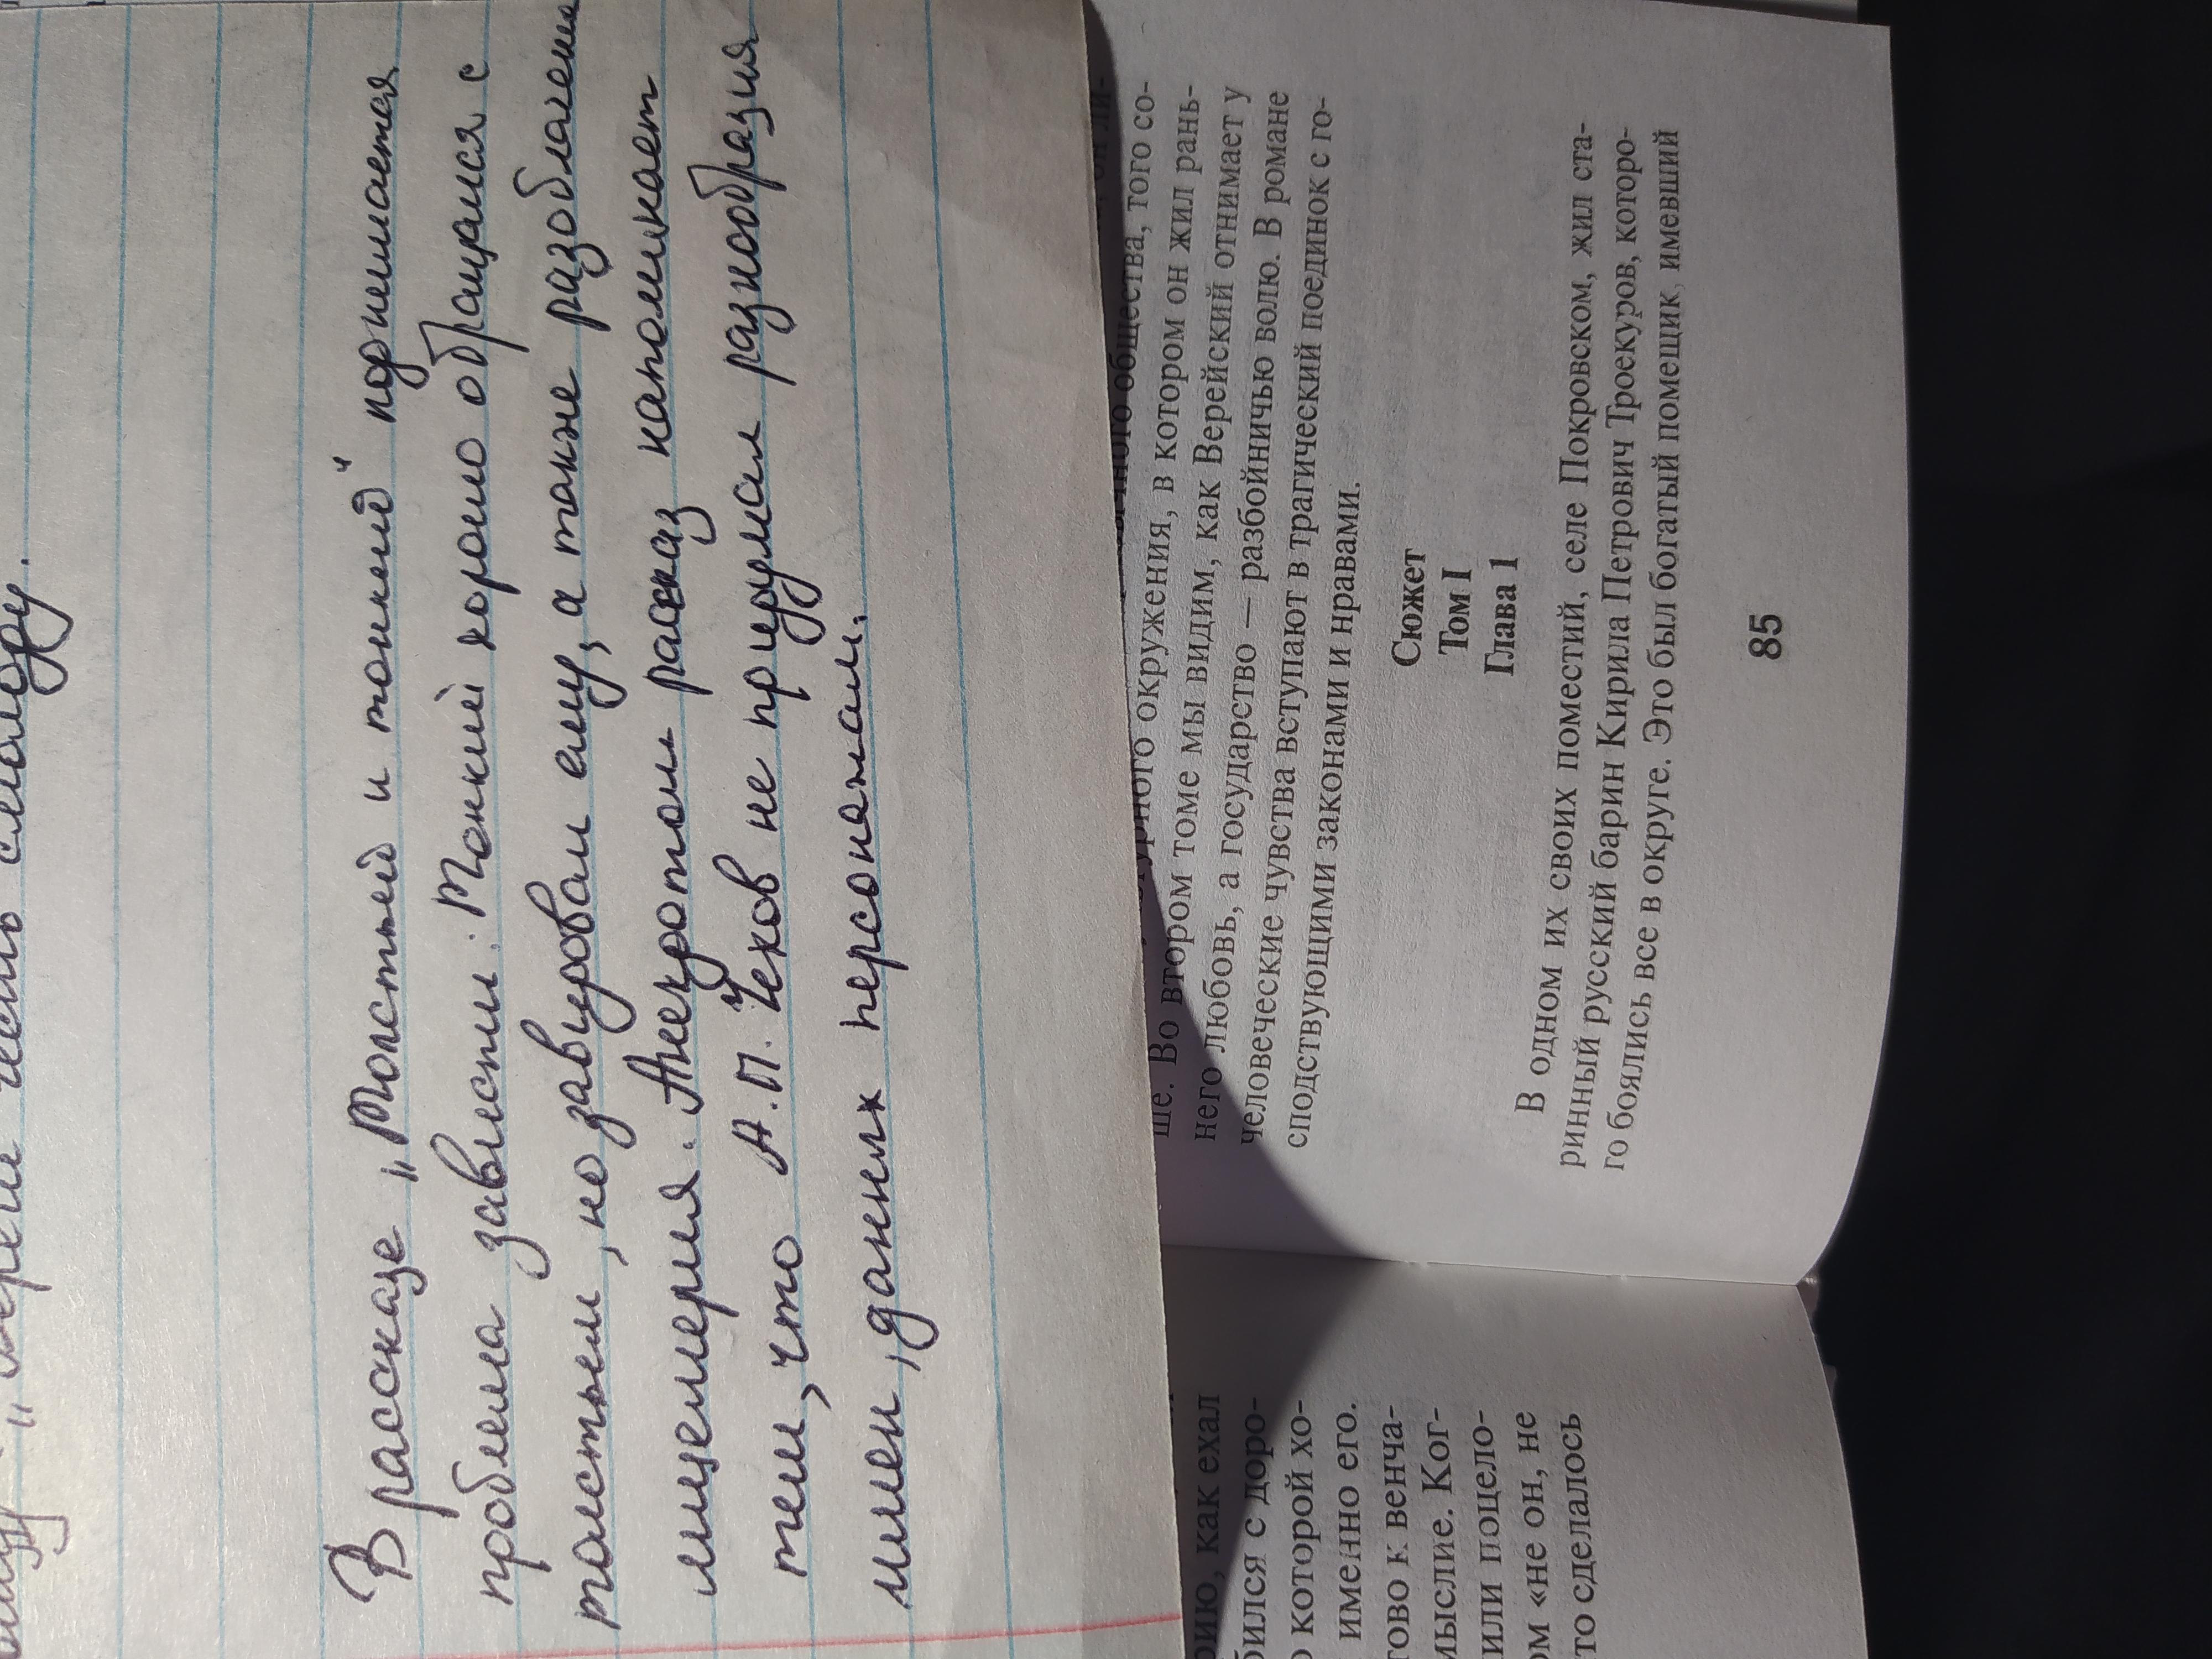 честь смолоду.
В рассказе „Толстый и тонкий" поднимается
проблема зависти. Тонкий хорошо общался с
толстым, но завидовал ему, а также разоблачение
лицемерия. Анекдотом расказ напоминает
тем, что А.П. Чехов не придумал разнообразия
имен, данних персонажам.
чного общества, того со-
турного окружения, в котором он жил рань-
ше. Во втором томе мы видим, как Верейский отнимает у
него любовь, а государство — разбойничью волю. В романе
человеческие чувства вступают в трагический поединок с го-
сподствующими законами и нравами.
Сюжет
Том I
Глава 1
В одном их своих поместий, селе Покровском, жил ста-
ринный русский барин Кирила Петрович Троекуров, которо-
го боялись все в округе. Это был богатый помещик, имевший
85
рию, как ехал
бился с доро-
о которой хо-
именно его.
тово к венча-
мыслие. Ког-
или поцело-
ом «не он, не
то сделалось